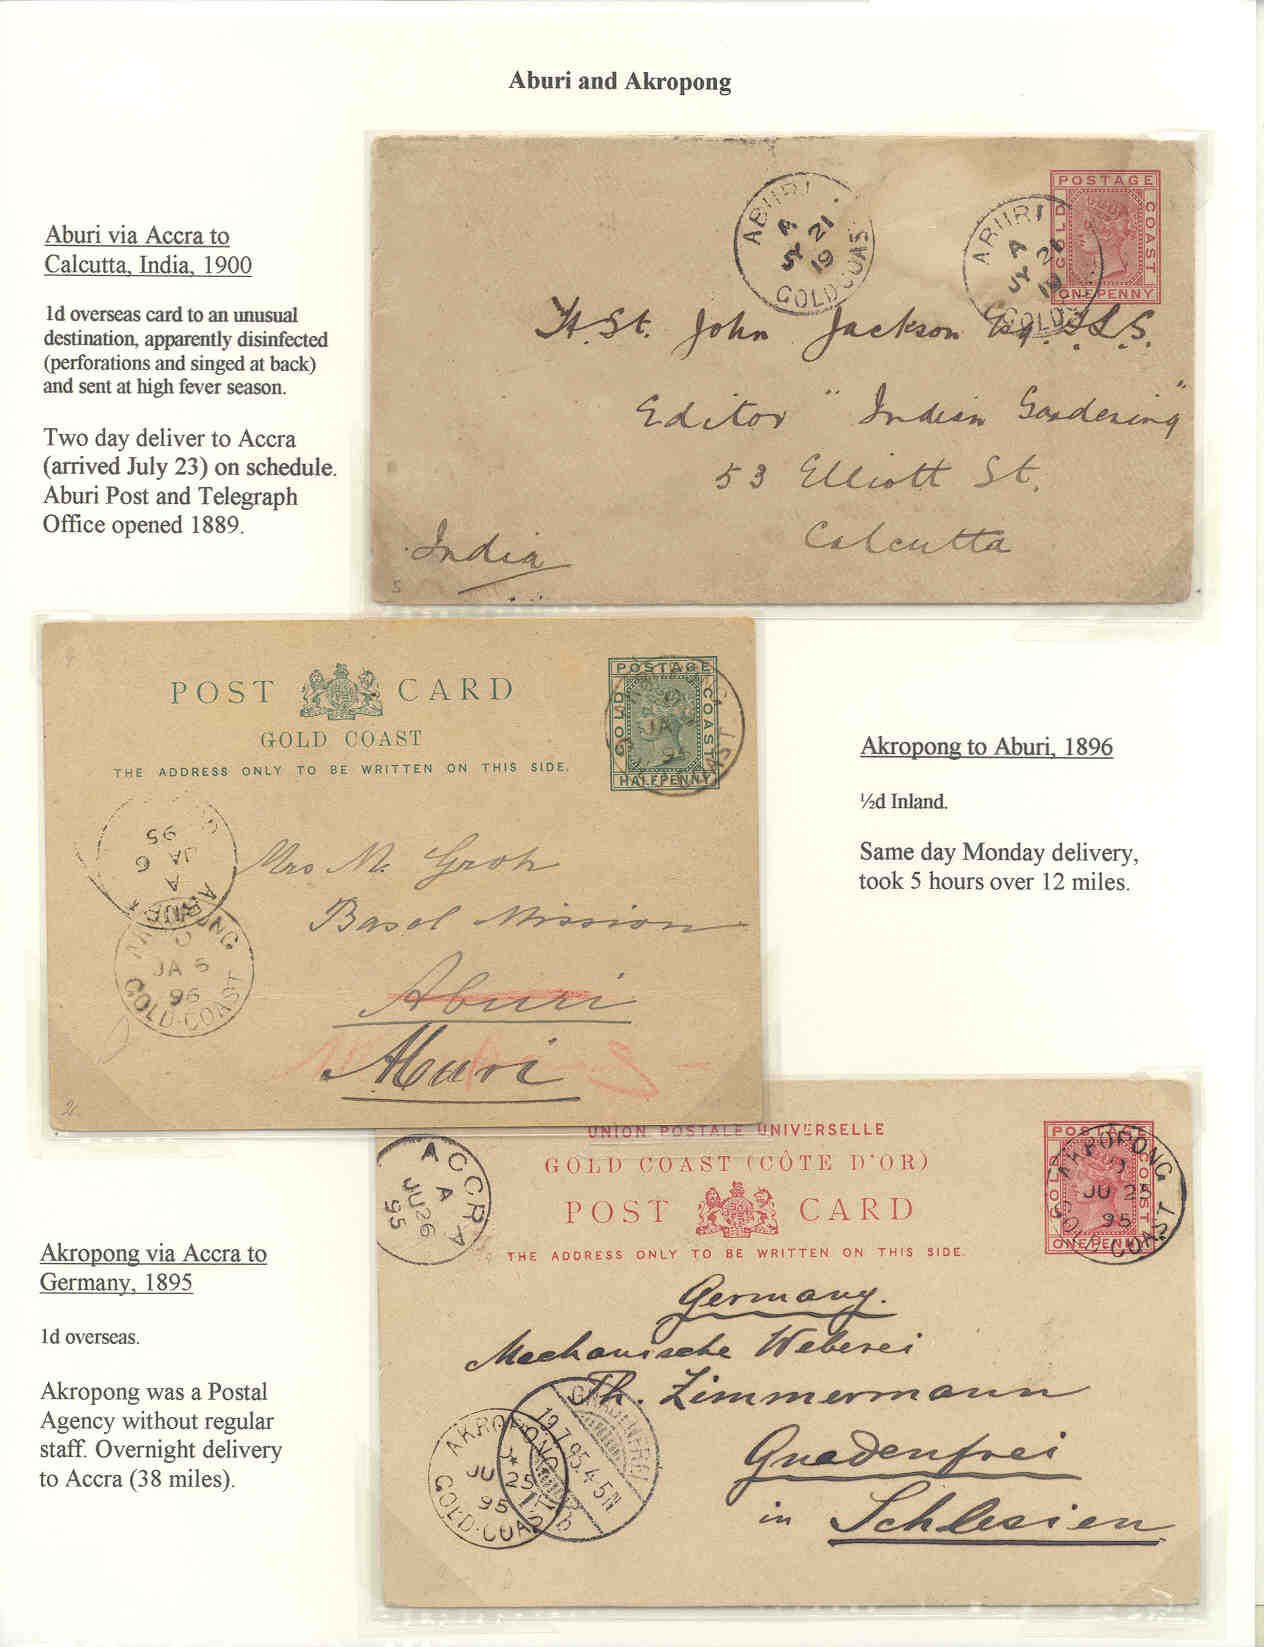 Aburi and Akropong
Aburi via Accra to
Calcutta, India, 1900
1d overseas card to an unusual
destination, apparently disinfected
(perforations and singed at back)
and sent at high fever season.
Two day deliver to Accra
(arrived July 23) on schedule.
Aburi Post and Telegraph
Office opened 1889.
ABURI
A
JY 21
19
GOLD COAST
ABURI
A
JY 21
19
GOLD
POSTAGE
GOLD
COAST
ONE PENNY
H. St. John Jackson Esq. F.L.S.
Editor "Indian Gardening"
53 Elliott St.
Calcutta
India
5
POST CARD
GOLD COAST
THE ADDRESS ONLY TO BE WRITTEN ON THIS SIDE.
POSTAGE
GOLD
COAST
HALFPENNY
JA
ABURI
A
JA 6
95
Mrs M. Groh
Basel Mission
Aburi
Aburi
JA 6
96
GOLD COAST
2
Akropong to Aburi, 1896
½d Inland.
Same day Monday delivery,
took 5 hours over 12 miles.
Akropong via Accra to
Germany, 1895
1d overseas.
Akropong was a Postal
Agency without regular
staff. Overnight delivery
to Accra (38 miles).
UNION POSTALE UNIVERSELLE
GOLD COAST (CÔTE D'OR)
POST CARD
THE ADDRESS ONLY TO BE WRITTEN ON THIS SIDE.
ACCRA
A
JU 26
95
POSTAGE
GOLD
COAST
ONE PENNY
AKROPONG
JU 25
95
GOLD COAST
Germany.
Mechanische Weberei
Th. Zimmermann
Gnadenfrei
in Schlesien
AKROPONG
JU 25
95
GOLD COAST
GNADENFREI
19.7.95.4-5N
b